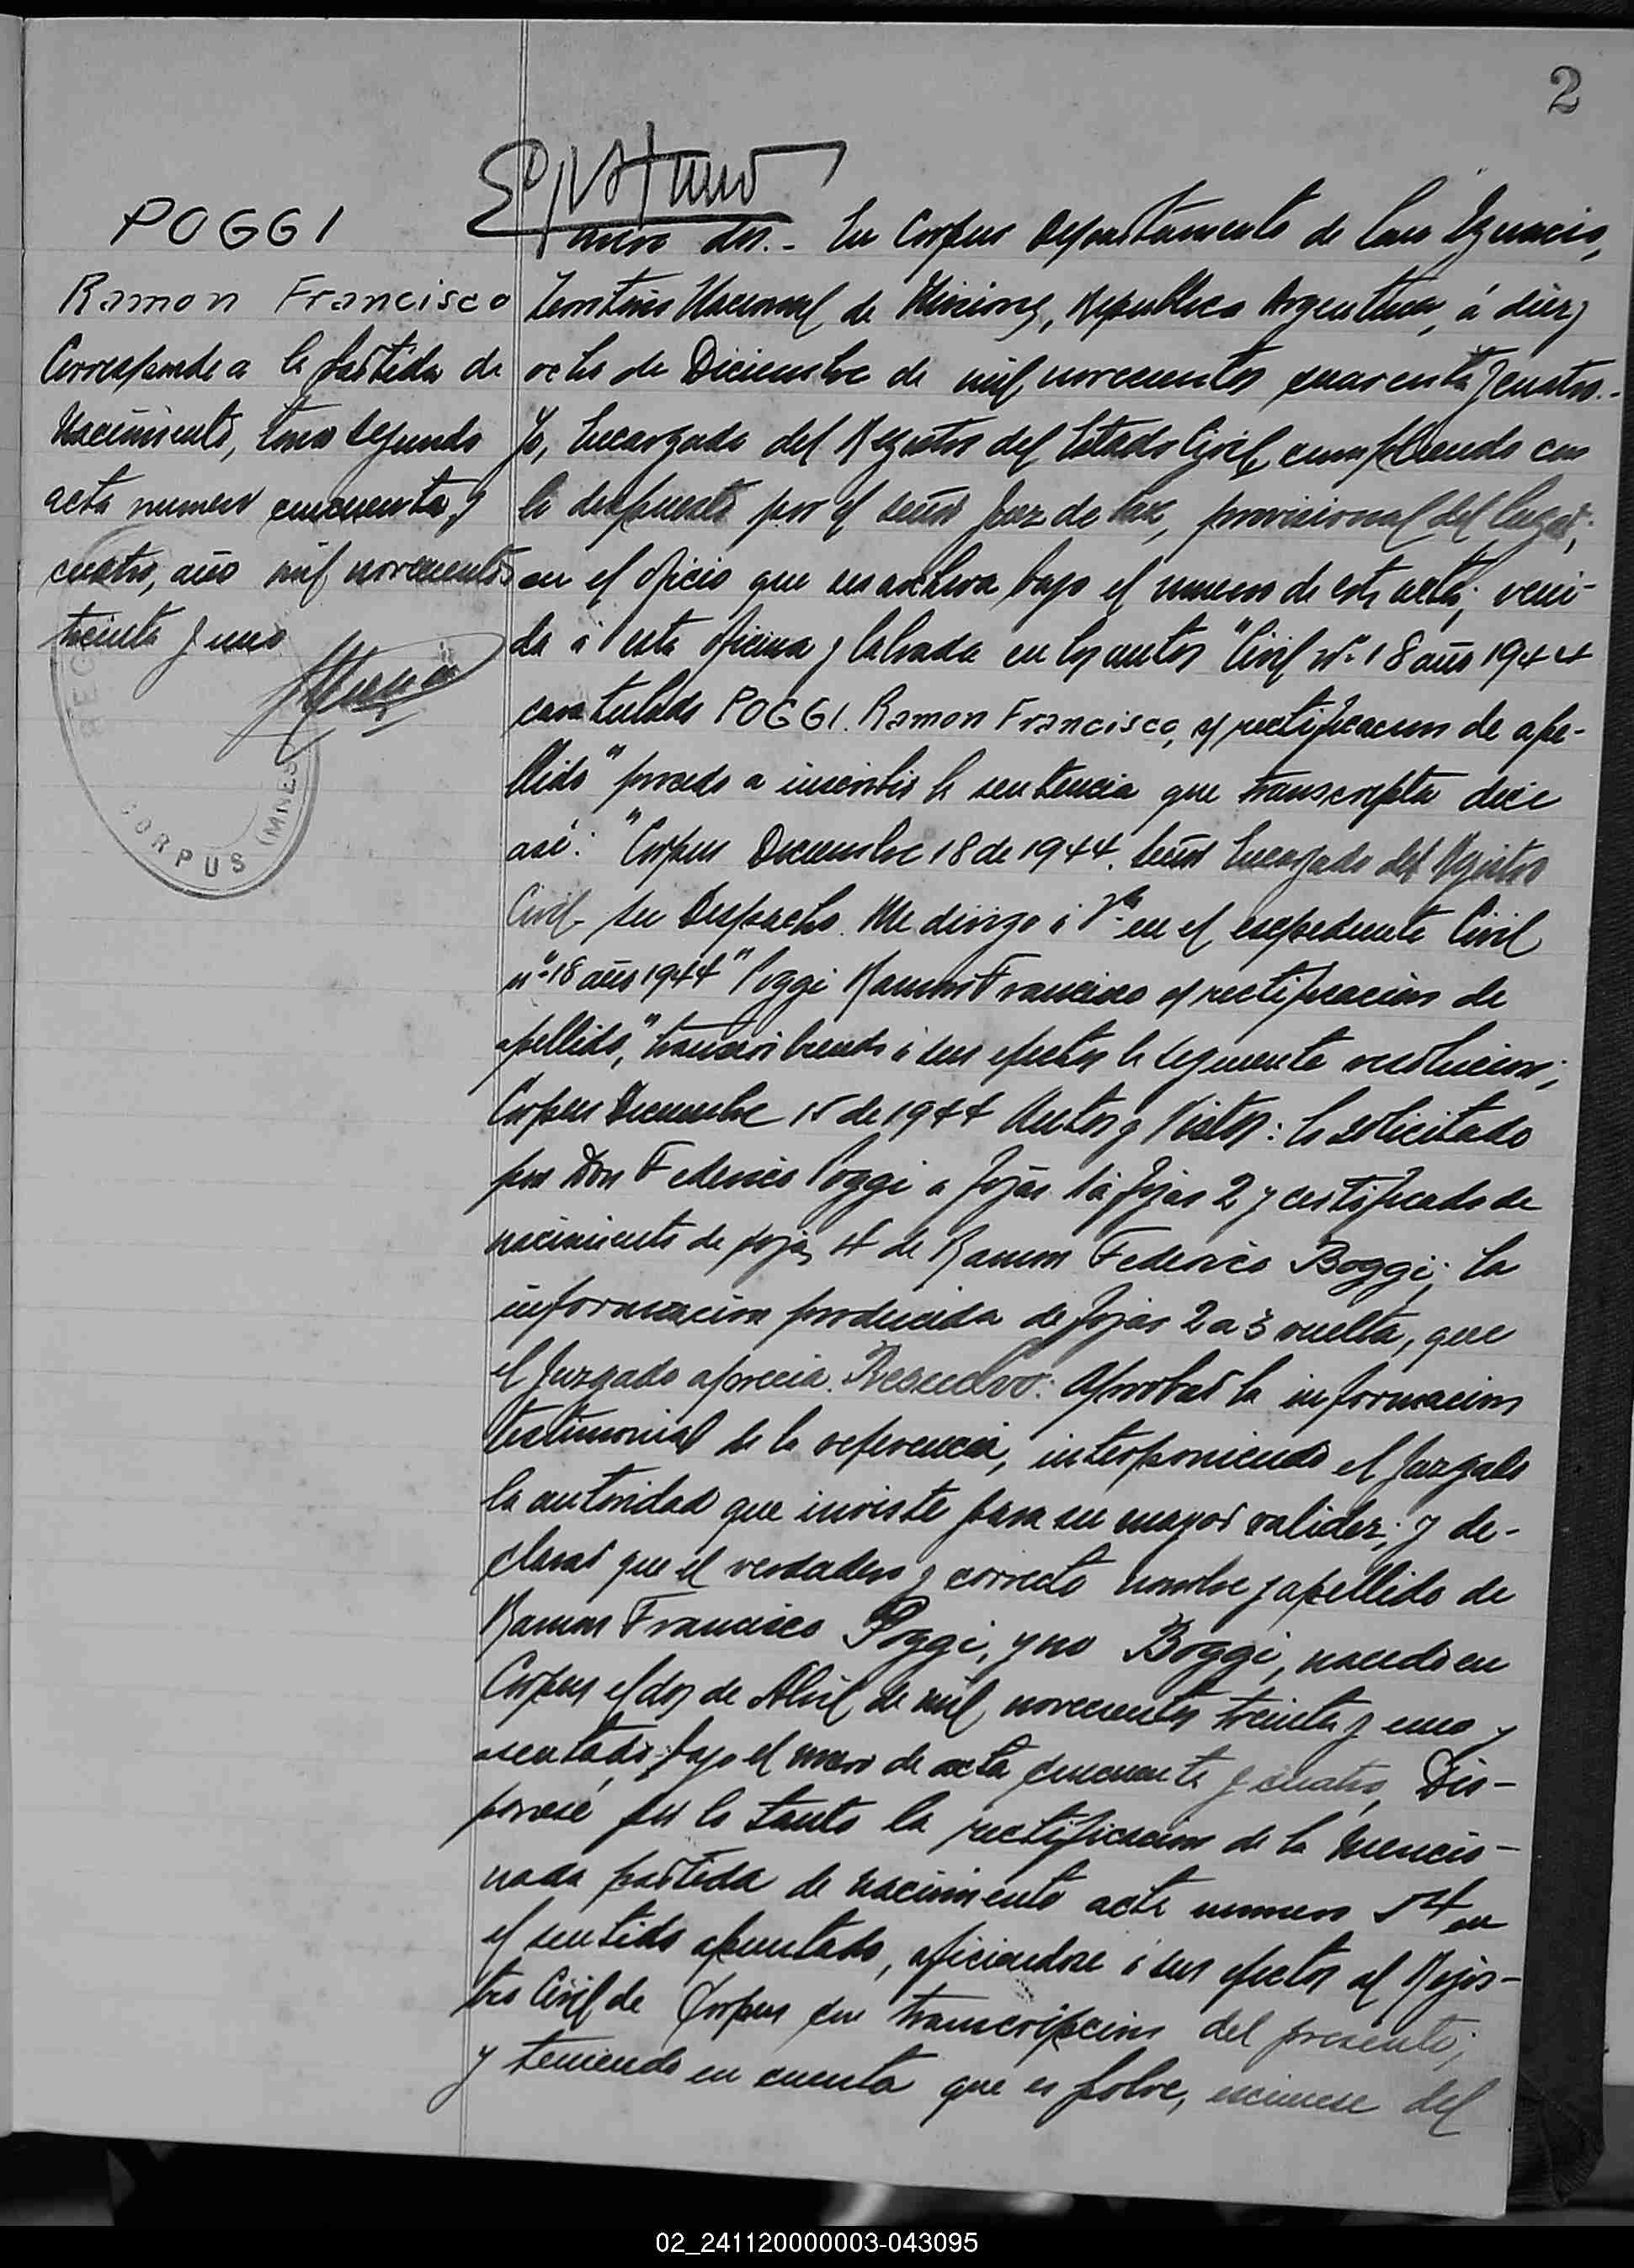 2
POGGI
Ramon Francisco
Corresponde a la partida de
Nacimiento, tomo segundo
acta numero cincuenta y
cuatro, año mil novecientos
treinta y uno
REG
CORPUS (MNES
numero dos.- En Corpus Departamento de San Ygnacio,
Territorio Nacional de Misiones, Republica Argentina, á diez y
ocho de Diciembre de mil novecientos cuarenta y cuatro.-
Yo, Encargado del Registro del Estado Civil, cumpliendo con
lo dispuesto por el señor Juez de Paz, provisional del lugar;
en el oficio que se archiva bajo el numero de esta acta; veni-
da á esta oficina y labrada en los autos "Civil nº 18 año 1944
caratulado POGGI. Ramon Francisco, s/ rectificacion de ape-
llido" procedo a inscribir la sentencia que transcripta dice
asi: "Corpus Diciembre 18 de 1944. Señor Encargado del Registro
Civil- Su Despacho. Me dirijo á Vd. en el expediente Civil
nº 18 año 1944 "Poggi Ramon Francisco s/ rectificacion de
apellido", transcribiendo á sus efectos la siguiente resolucion;
Corpus Diciembre 15 de 1944 Autos y Vistos: lo solicitado
por Don Federico Poggi a fojas 1 á fojas 2 y certificado de
nacimiento de fojas 4 de Ramon Federico Boggi; la
informacion producida de fojas 2 a 3 vuelta, que
el Juzgado aprecia. Resuelvo: Aprobar la informacion
testimonial de la referencia, interponiendo el Juzgado
la autoridad que inviste para su mayor validez; y de-
clarar que el verdadero y correcto nombre y apellido de
Ramon Francisco Poggi, y no Boggi, nacido en
Corpus el dos de Abril de mil novecientos treinta y uno y
asentado bajo el numero de acta cincuenta y cuatro, Dis-
ponese por lo tanto la rectificacion de la mencio-
nada partida de nacimiento acta numero 54 en
el sentido apuntado, oficiandose á sus efectos al Rejis-
tro Civil de Corpus con transcripcion del presente;
y teniendo en cuenta que es pobre, eximese del
02_241120000003-043095